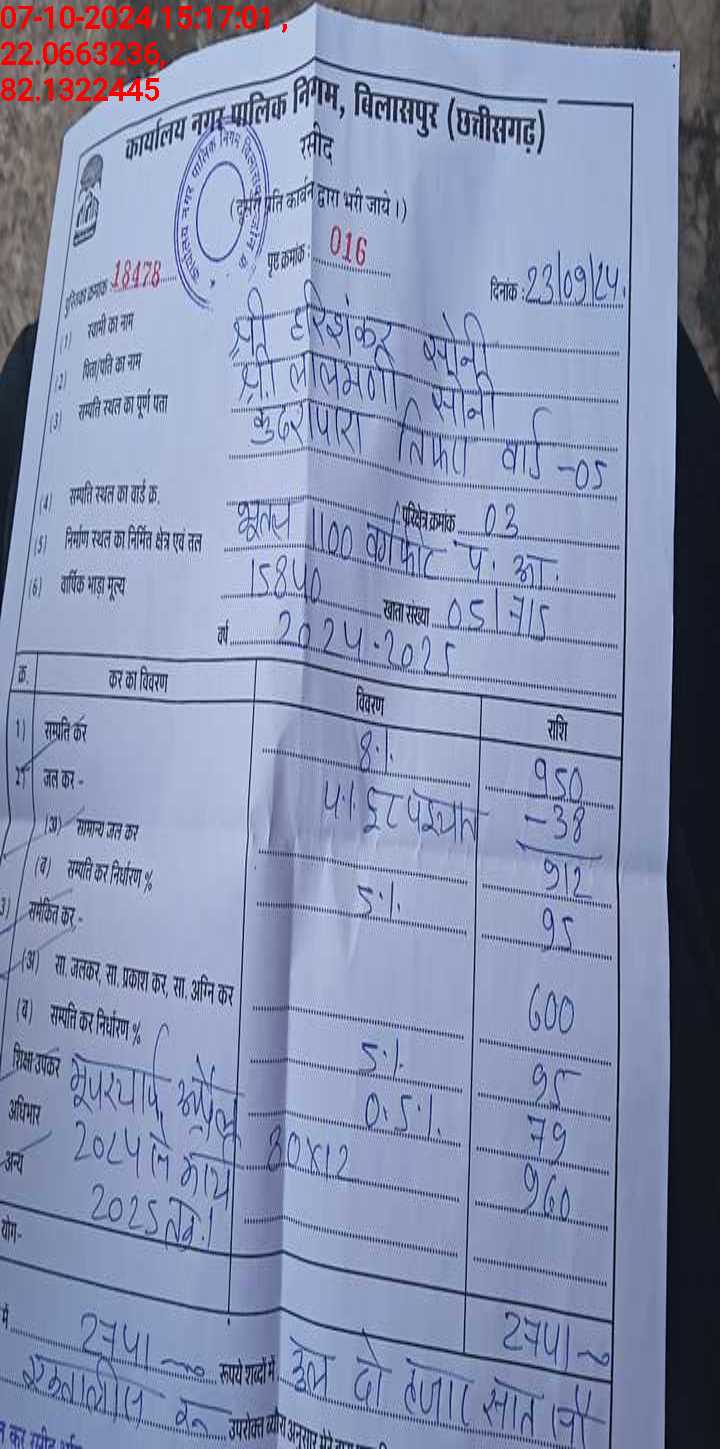 07-10-2024 15:17:01 ,
22.0663236,
82.1322445
कार्यालय नगर पालिक निगम, बिलासपुर (छत्तीसगढ़)
रसीद
(दूसरी प्रति कार्बन द्वारा भरी जाये।)
पुस्तिका क्रमांक 18478 पृष्ठ क्रमांक : 016 दिनांक : 23/09/24.
(1) स्वामी का नाम श्री हरिशंकर सोनी
(2) पिता/पति का नाम श्री लालमणी सोनी
(3) सम्पति स्थल का पूर्ण पता कुदरापारा तिफरा वार्ड -05
(4) सम्पति स्थल का वार्ड क्र. परिक्षेत्र क्रमांक 03
(5) निर्माण स्थल का निर्मित क्षेत्र एवं तल भूतल 1100 वर्गफीट प. आ.
(6) वार्षिक भाड़ा मूल्य 15840 खाता संख्या 05/715
वर्ष 2024-2025
क्र. कर का विवरण विवरण राशि
1) सम्पति कर 8% 950
2) जल कर - 4% छुट पश्चात -38
(अ) सामान्य जल कर 912
(ब) सम्पति कर निर्धारण % 5% 95
3) समेकित कर,-
(अ) सा. जलकर, सा. प्रकाश कर, सा. अग्नि कर 600
(ब) सम्पति कर निर्धारण % 5% 95
शिक्षा उपकर 0.5% 79
यूपरचार्ज, अप्रैल
अधिभार 2024 से मार्च 80x12 960
अन्य 2025 तक।
योग- 2741
में 2741 रूपये शब्दों में कुल दो हजार सात सौ
एकतालीस रू उपरोक्त ब्यौरा अनुसार मेरे द्वारा